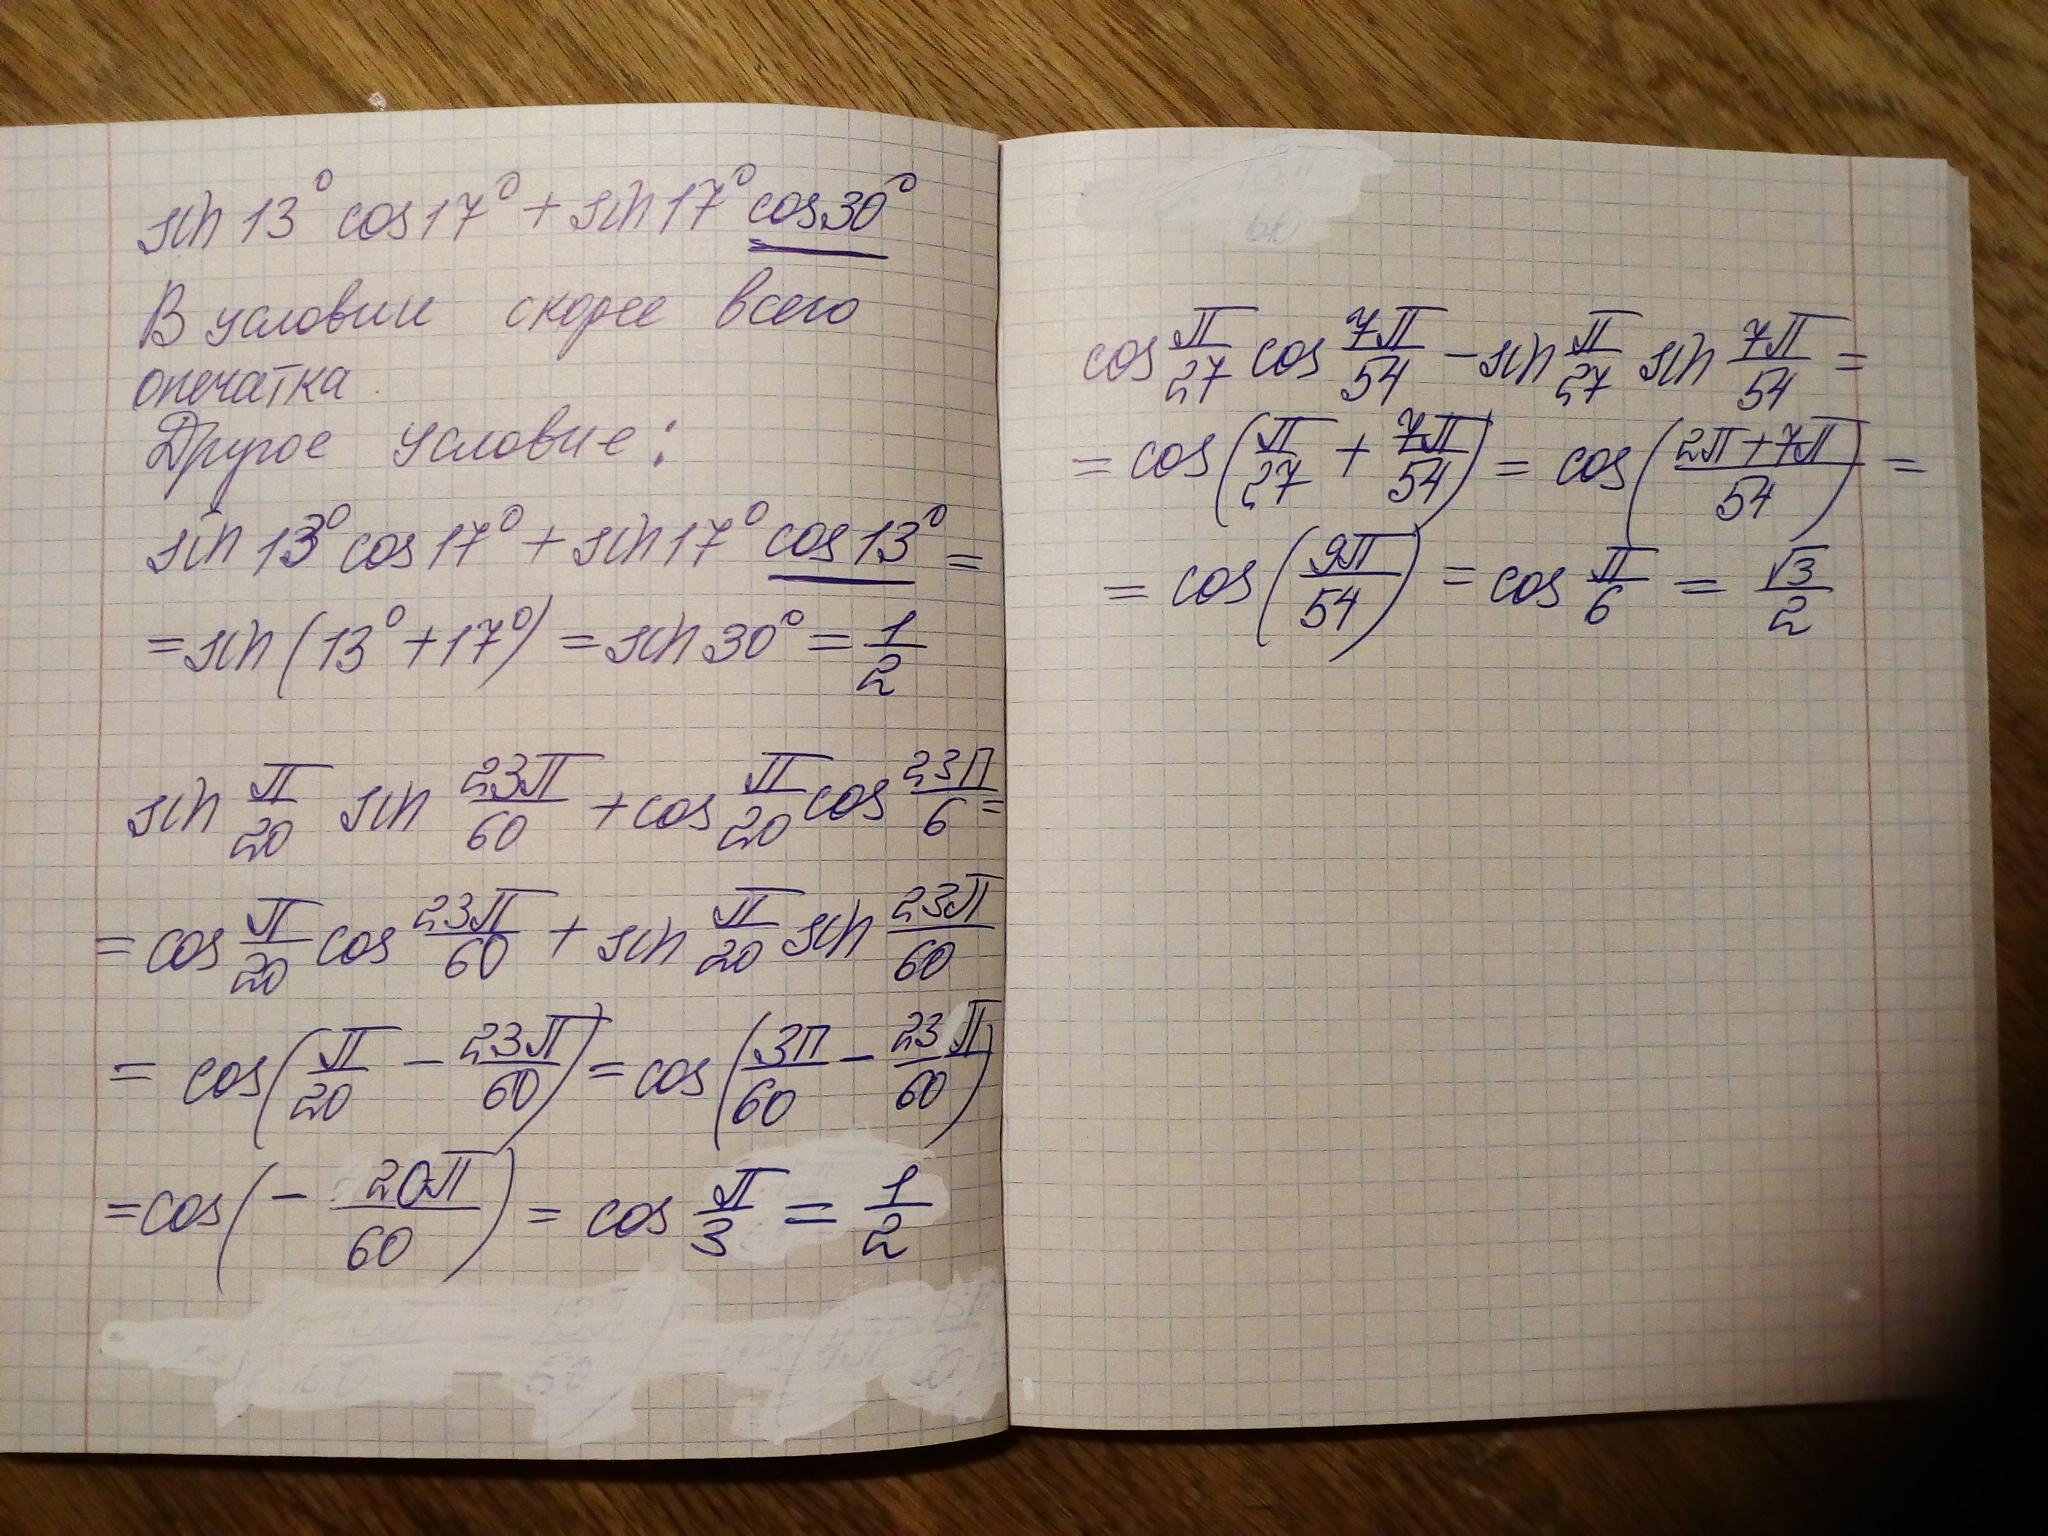 sin 13° cos 17° + sin 17° cos 30°
В условии скорее всего
опечатка.
Другое условие:
sin 13° cos 17° + sin 17° cos 13° =
= sin (13° + 17°) = sin 30° = 1/2
sin π/20 sin 23π/60 + cos π/20 cos 23π/6 =
= cos π/20 cos 23π/60 + sin π/20 sin 23π/60
= cos (π/20 − 23π/60) = cos (3π/60 − 23π/60)
= cos (− 20π/60) = cos π/3 = 1/2
cos π/27 cos 7π/54 − sin π/27 sin 7π/54 =
= cos (π/27 + 7π/54) = cos (2π + 7π/54) =
= cos (9π/54) = cos π/6 = √3/2